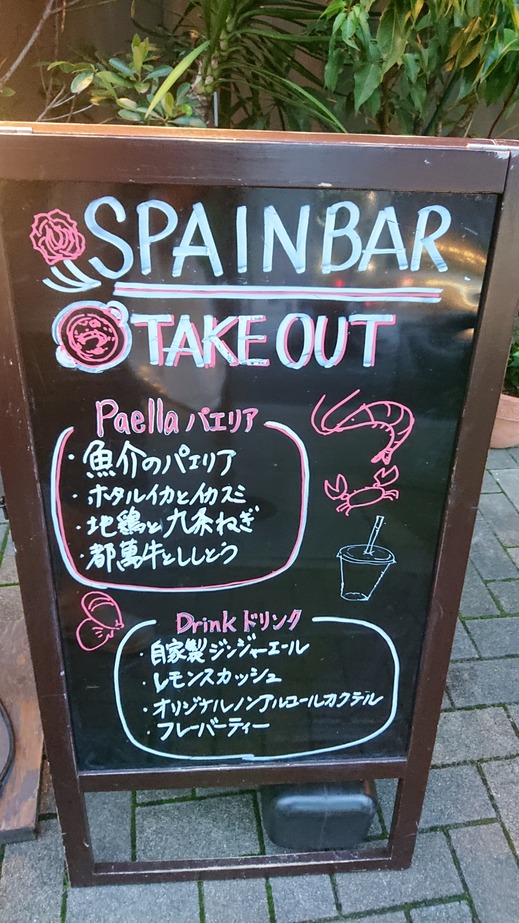 SPAIN BAR
TAKE OUT
Paella パエリア
・魚介のパエリア
・ホタルイカとイカスミ
・地鶏と九条ねぎ
・都萬牛とししとう
Drink ドリンク
・自家製ジンジャーエール
・レモンスカッシュ
・オリジナルノンアルコールカクテル
・フレーバーティー